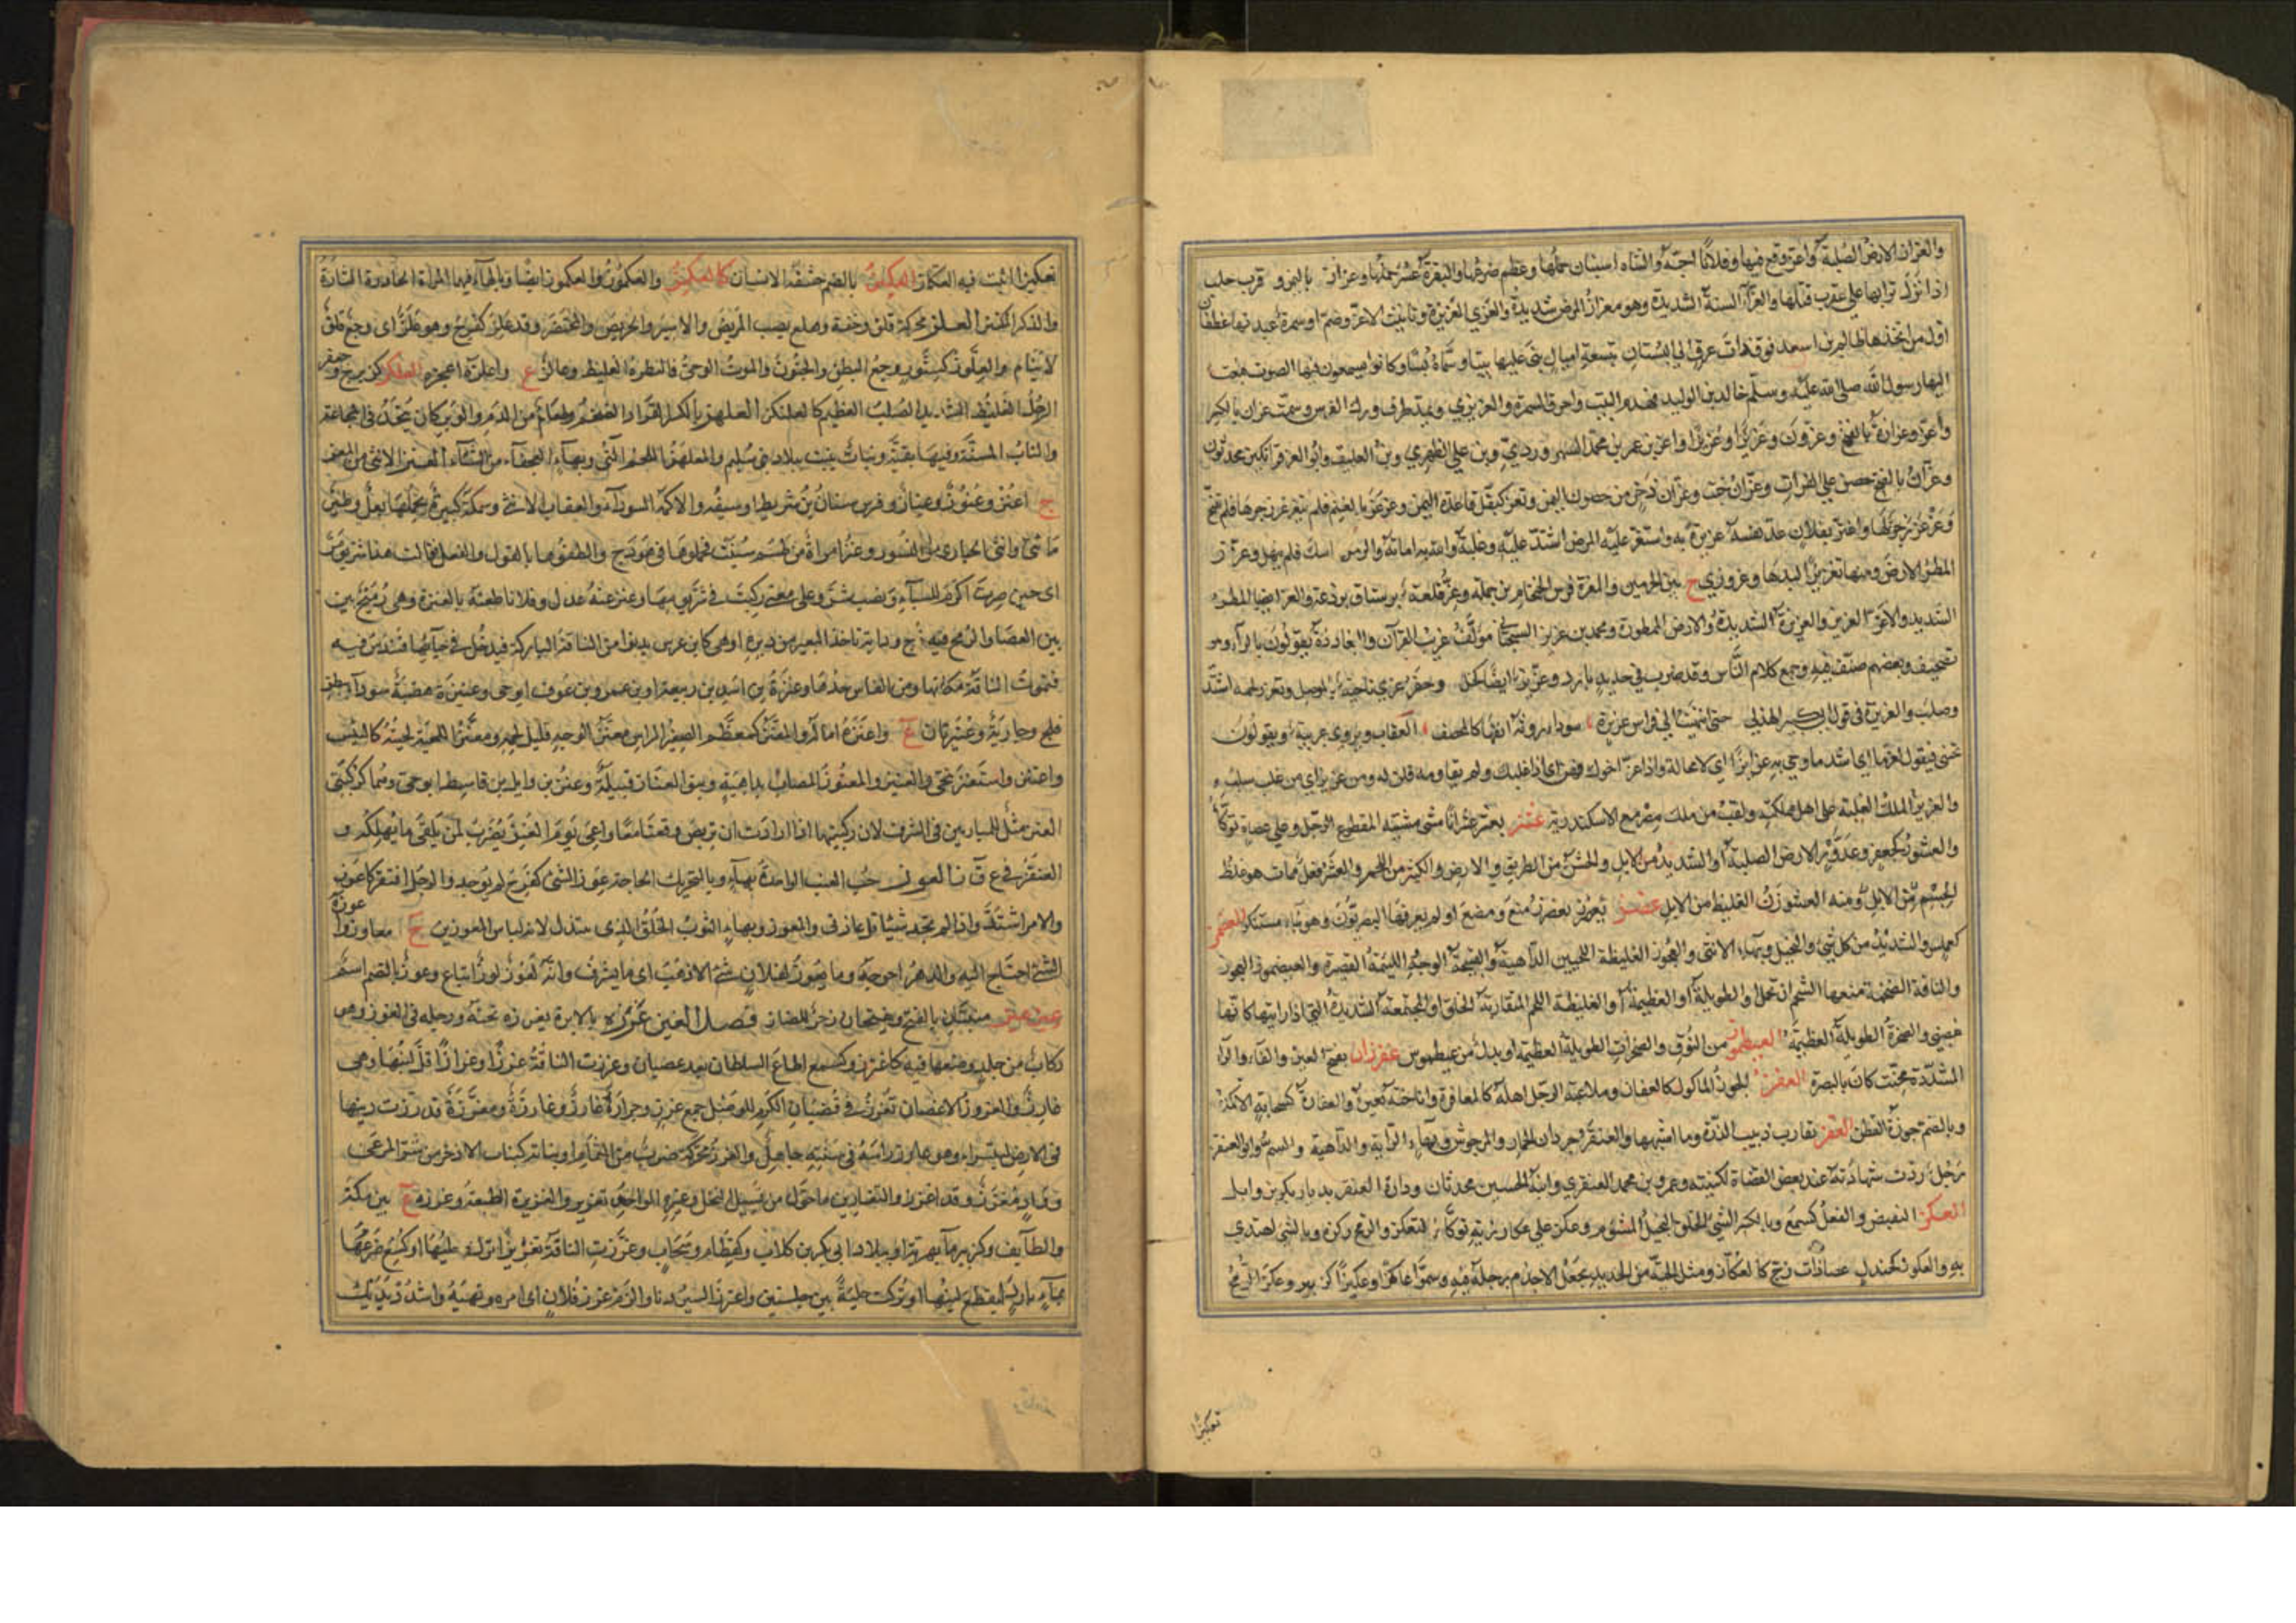 والعزاز الارض الصلبة واعز وقع فيها وفلانا احبه والشاة استبان حملها وعظم ضرعها والبقرة عسر حملها وعزاز باليمن و قرب حلب
اذا ترك ترابها على عقرب قتلها والعزاء السنة الشديدة وهو معزاز المرض شديده والعزى العزيزة وتانيث الاعز وصنم او سمرة عبدتها غطفان
اول من اتخذها ظالم بن اسعد فوق ذات عرق الى البستان بتسعة اميال بنى عليها بيتا وسماه بسا وكانوا يسمعون فيها الصوت فبعث
اليها رسول الله صلى الله عليه وسلم خالد بن الوليد فهدم البيت واحرق السمرة والعزيزى ويمد طرف ورك الفرس وسمت عزان بالكسر
واعز وعزازة بالفتح وعزون وعزيزا وعزيزا واعز بن عمر بن محمد السهروردي وبن علي الظهيري وبن العليق وابو العز قراتكين محدثون
وعزان بالفتح حصن على الفرات وعزان خبت وعزان ذخر من حصون اليمن وتعز كتقل قاعدة اليمن وعزعز بالعنز فلم تتعزعز زجرها فلم تتنح
وعز عز زجر لها واعتز بفلان عد نفسه عزيزة به واستعز عليه المرض اشتد عليه وغلبه والله به اماته والرمل اسك فلم ينهل وعزز
المطر الارض ومنها تعزيزا لبدها وعزوزى ع بين الحرمين والعزة فرس الخمخام بن جملة وعز قلعة برستاق برذعة والعز ايضا المطر
الشديد والاعز العزيز والعزيزة الشديدة والارض الممطورة ومحمد بن عزيز السجستاني مؤلف غريب القرآن والبغاددة يقولون بالراء وهو
تصحيف وبعضهم صنف فيه وجمع كلام الناس وقد ضرب في حديد بارد وعزيز ايضا كحل وحفر عزى ناحية بالموصل وتعزز لحمه اشتد
وصلب والعزيزة في قول ابي كبير الهذلي حتى انتهيت الى فراش عزيزة سوداء روثة انفها كالمخصف العقاب ويروى عزيبة ويقولون
تحبني فيقول لعزما اي اشد ما وجئ به عزا بزا اي لا محالة واذا عز اخوك فهن اي اذا غلبك ولم تقاومه فلن له ومن عز بز اي من غلب سلب
والعزيز الملك لغلبته على اهل مملكته ولقب من ملك مصر مع الاسكندرية عشز يعشز عشزانا مشى مشية المقطوع الرجل وعلى عصاه توكأ
والعشوز كجعفر وعذور الارض الصلبة والشديد من الابل والخشن من الطريق والارض والكثير من اللحم والعشز فعل ممات هو غلظ
الجسم من الابل ومنه العشوزن الغليظ من الابل عضز يعضز منع ومضغ او لم يعرفها البصريون وهو بناء مستنكر العضمز
كعملس والشديد من كل شئ والبخيل وبهاء الانثى والعجوز الغليظة اللحيين الداهية والقبيحة الوجه اللئيمة القصيرة والعيضموز العجوز
والناقة الضخمة منعها الشحم ان تحمل او الطويلة او العظيمة او الغليظة اللحم المتقاربة الخلق او المجتمعة الشديدة التي اذا رايتها كانها
غضبى والصخرة الطويلة العظيمة العيطموز من النوق والصخرات الطويلة العظيمة او بدل من عيطموس عفرزان بفتح العين والفاء والراء
المشددة مخنث كان بالبصرة العفز الجوز الماكول كالعفاز وملاعبة الرجل اهله كالمعافزة واناخة بعيره والعفازة كسحابة الاكمة
وبالضم جوزة القطن العقز تقارب دبيب الذرة وما اشبهها والعنقز جردان الحمار والمرجوش وبهاء الراية والداهية والسم وابو العنقز
رجل ردت شهادته عند بعض القضاة لكنيته وعمرو بن محمد العنقزي وابنه الحسين محدثان ودارة العنقز بديار بكر بن وايل
العكز التقبض والفعل كسمع وبالكسر السئ الخلق البخيل المشوم وعكز على عكازته توكأ كتعكز والرمح ركزه وبالشئ اهتدى
به والعكوز كجندل عصا ذات زج كالعكاز ومثل الجبة من الحديد يجعل الاجذم رجله فيه وسموا عاكزا وعكيزا كزبير وعكز الرمح
تعكيزا
تعكيزا اثبت فيه العكاز العكمز بالضم حشفة الانسان كالعكمز والعكموز والعكموز ايضا وبالهاء فيهما المراة الحادرة التارة
والذكر المكتنز العلز محركة قلق وخفة وهلع يصيب المريض والاسير والحريص والمحتضر وقد علز كفرح وهو علز اى وجع قلق
لا ينام والعلوز كسنور وجع البطن والجنون والموت الوحي والبظر الغليظ وعالز ع واعلزه اعجزه العلكز كزبرج وجعفر
الرجل الغليظ الشديد الصلب العظيم كالعلنكز العلهز بالكسر القراد الضخم وطعام من الدم والوبر كان يتخذ في المجاعة
والناب المسنة وفيها بقية ونبات ينبت ببلاد بني سليم والمعلهز اللحم النئ وبهاء العجفاء من الشاء العنز الانثى من المعز
ج اعنز وعنوز وعناز وفرس سنان بن شريط او سيفه والاكمة السوداء والعقاب الانثى وسمكة كبيرة لا يكاد يحملها بغل وطير
مائي وانثى الحبارى والنسور وعنز امراة من طسم سبيت فحملوها في هودج والطفوها بالقول والفعل فقالت هذا شر يومي
اى حين صرت اكرم للسباء ونصب شر على معنى ركبت في شر يوميها وعنز عنه عدل وفلانا طعنه بالعنزة وهي رميح بين
بين العصا والرمح فيه زج ودابة تاخذ البعير من دبره او هي كابن عرس يدنو من الناقة الباركة فيدخل في حيائها فتندس فيه
فتموت الناقة مكانها ومن الفاس حدها وعنزة بن اسد بن ربيعة او بن عمرو بن عوف ابو حى وعنيزة هضبة سوداء ببطن
فلج وجارية وعنيزتان ع واعنزه اماله والمعنز كمعظم الصغير الراس معنز الوجه قليل لحمه ومعنز اللحية لحيته كالتيس
واعتنز واستعنز تنحى والعنيز والمعنوز المصاب بداهية وبنو العناز قبيلة وعنز بن وايل بن قاسط ابو حي وهما كركبتي
العنز مثل للمتباريين في الشرف لان ركبتيها اذا ارادت ان تربض وقعتا معا ولقي يوم العنز يضرب لمن يلقى ما يهلكه و
العنقز في ع ق ز العوز حب العنب الواحدة بهاء وبالتحريك الحاجة عوز الشئ كفرح لم يوجد والرجل افتقر كاعوز
والامر اشتد واذا لم تجد شيئا قل عازني والمعوز وبهاء الثوب الخلق الذى يبتذل لانه لباس المعوزين ج معاوز واعوزه
الشئ احتاج اليه والدهر احوجه وما يعوز لفلان شئ الا ذهب اى ما يشرف وانه لعوز لوز اتباع وعوز بالضم اسم
عيز عيز مبنيتان بالفتح ويفتحان زجر للضان فصل الغين غرزه بالابرة يغرزه نخسه ورجله في الغرز وهو
ركاب من جلد وضعها فيه كاغترز وكسمع اطاع السلطان بعد عصيان وغرزت الناقة غرزا وغرازا قل لبنها وهي
غارز والغروز الاغصان تغرز في قضبان الكرم للوصل جمع غرز وجرادة غارز وغارزة ومغرزة قد رزت ذنبها
في الارض لتسرء وهو غارز راسه في سنته جاهل والغرز محركة ضرب من الثمام او نباته كنبات الاذخر من شر المرعى
وواد مغرز وقد اغرز والتغاريز ما حول من فسيل النخل وغيره الواحد تغريز والغريزة الطبيعة وغرزة ع بين مكة
والطايف وكزبير ماء بضرية او ببلاد ابي بكر بن كلاب وكقطام وسحاب وغرزت الناقة تغريزا ترك حلبها او كسع ضرعها
بماء بارد لينقطع لبنها او تركت حلبة بين حلبتين واغترز السير دنا والزم غرز فلان اى امره ونهيه واشدد يديك